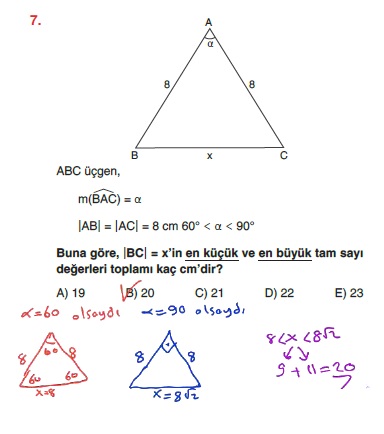 7.
A
α
8 8
B x C
ABC üçgen,
m(BAC) = α
|AB| = |AC| = 8 cm 60° < α < 90°
Buna göre, |BC| = x'in en küçük ve en büyük tam sayı
değerleri toplamı kaç cm'dir?
A) 19 B) 20 C) 21 D) 22 E) 23
α=60 olsaydı
60
8 8
60 60
x=8
α=90 olsaydı
8 8
x=8√2
8<x<8√2
9+11=20